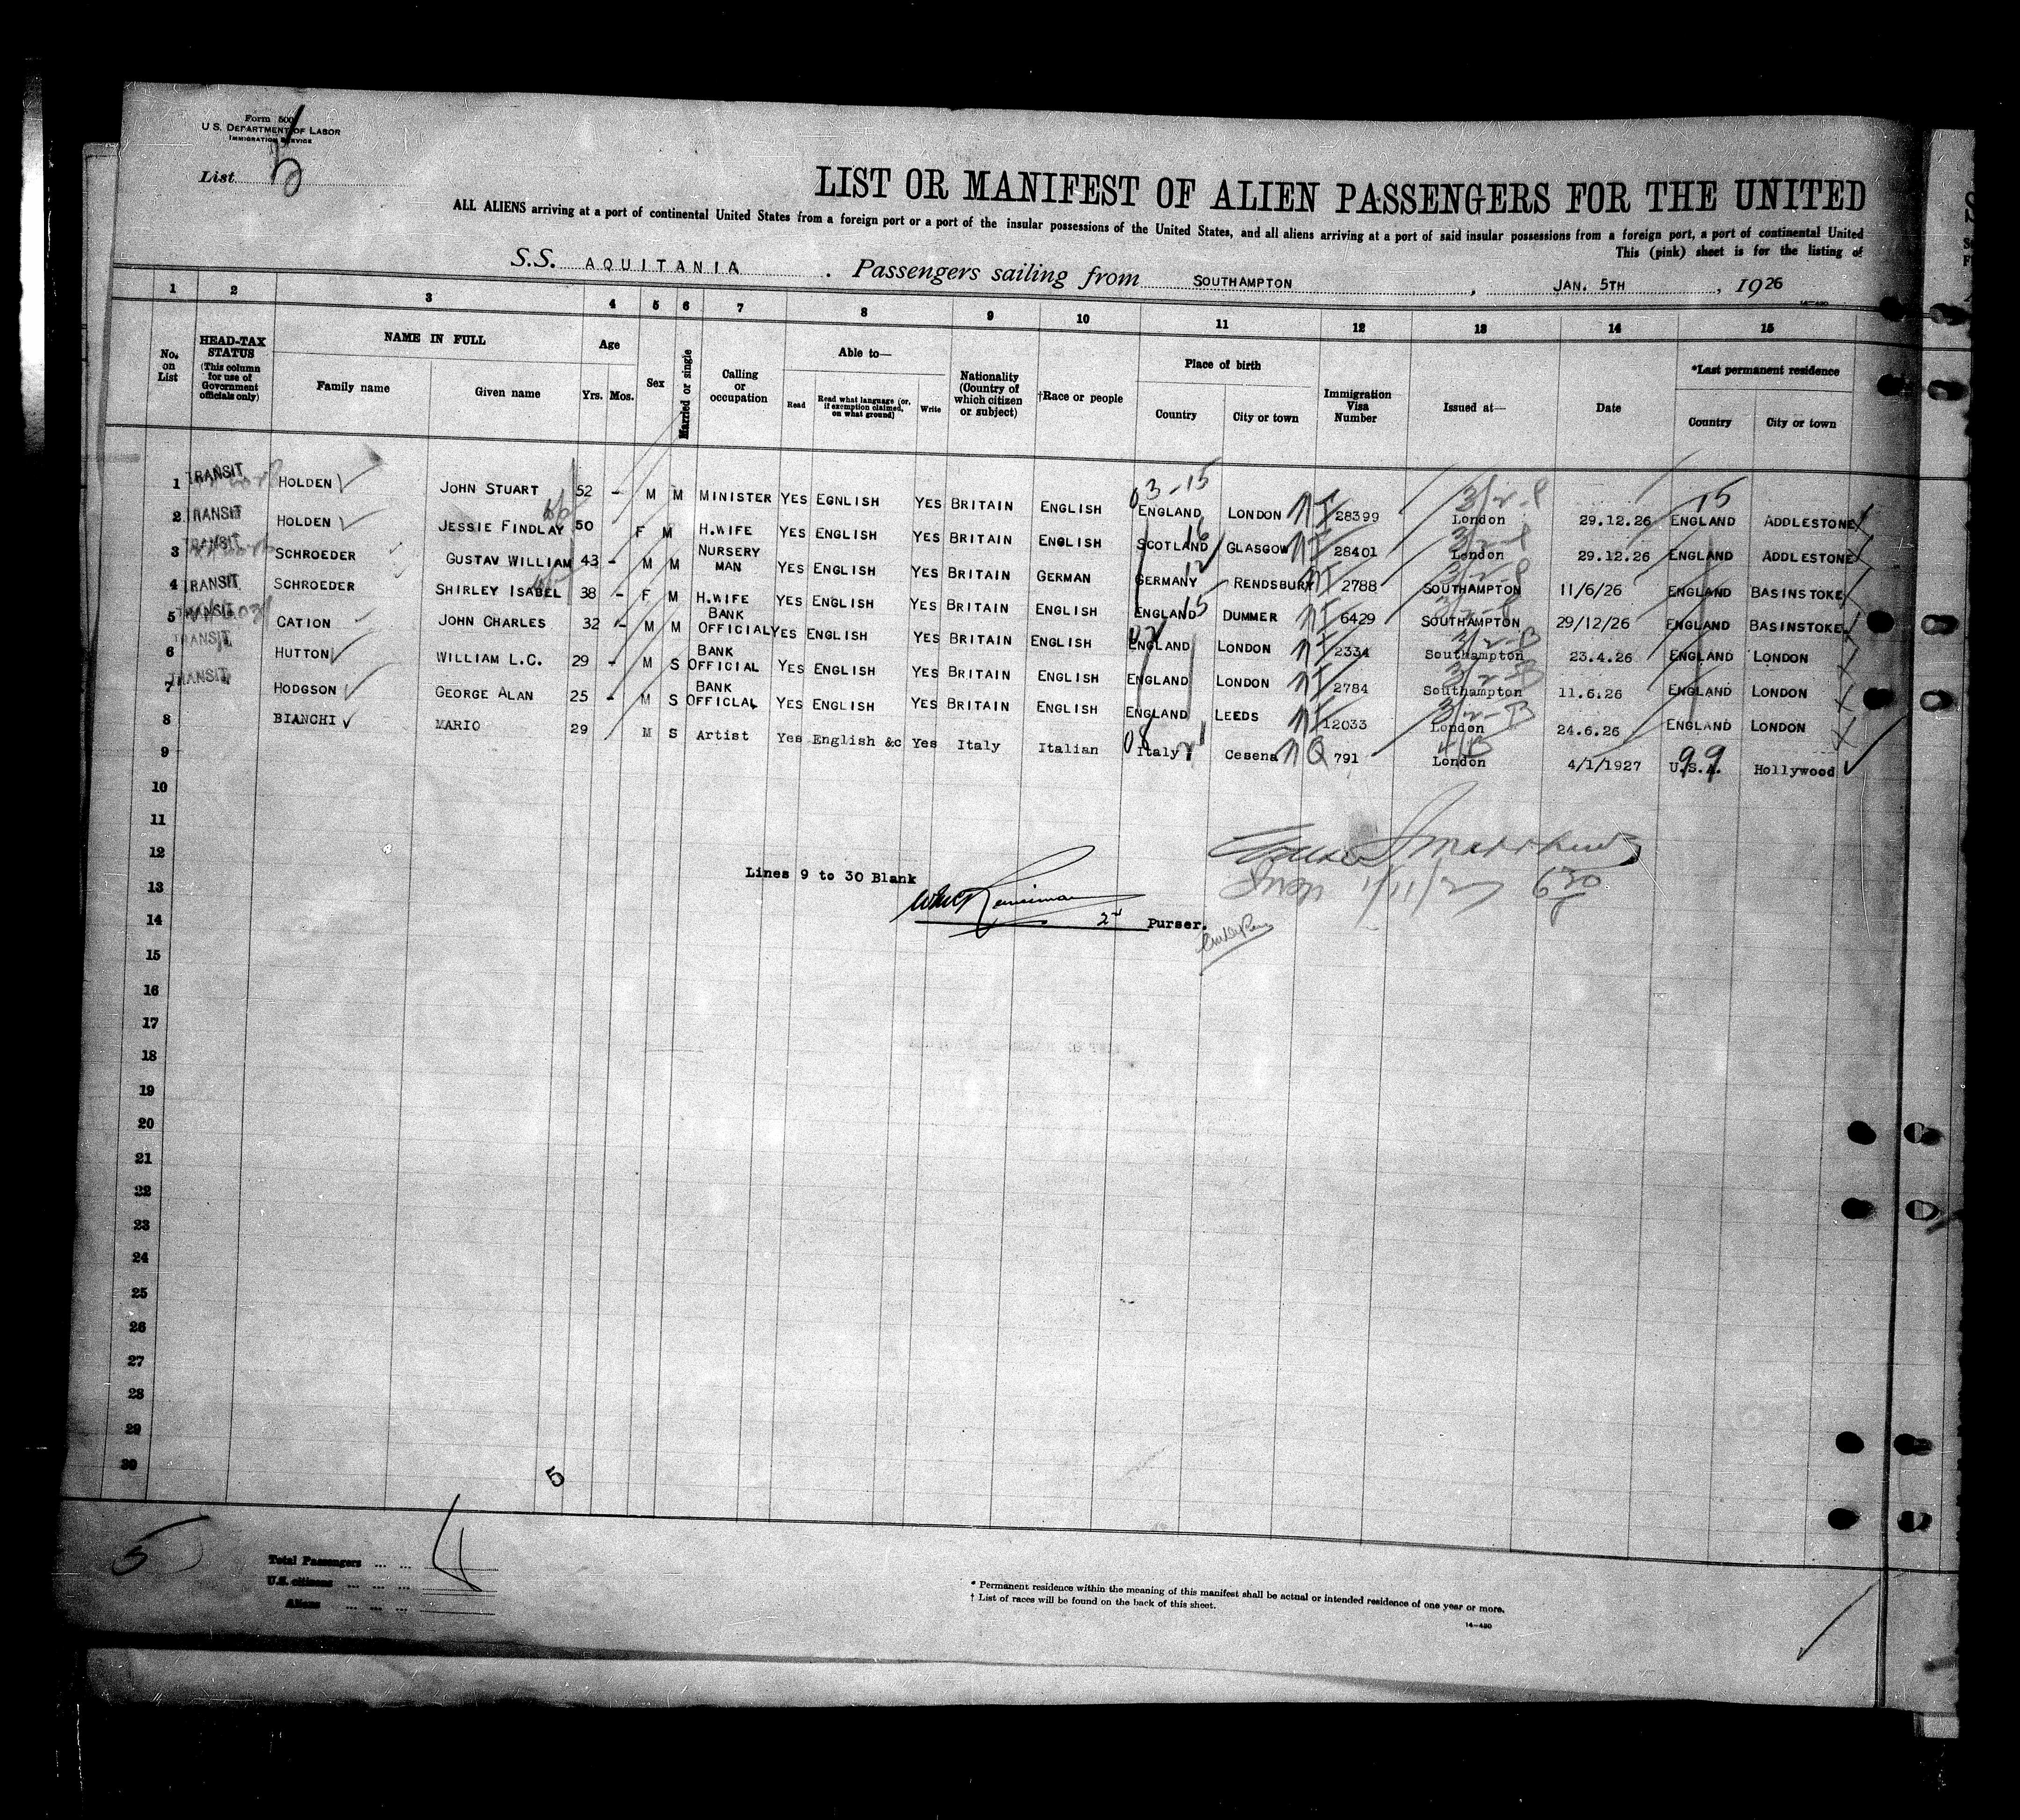 Form 500
U.S. DEPARTMENT OF LABOR
IMMIGRATION SERVICE
List 5
LIST OR MANIFEST OF ALIEN PASSENGERS FOR THE UNITED
ALL ALIENS arriving at a port of continental United States from a foreign port or a port of the insular possessions of the United States, and all aliens arriving at a port of said insular possessions from a foreign port, a port of continental United
This (pink) sheet is for the listing of
S.S. AQUITANIA . Passengers sailing from SOUTHAMPTON , JAN. 5TH , 1926
14-430
1 2 3 4 5 6 7 8 9 10 11 12 13 14 15
No. on List
HEAD-TAX STATUS (This column for use of Government officials only)
NAME IN FULL
Family name Given name
Age
Yrs. Mos.
Sex
Married or single
Calling or occupation
Able to—
Read Read what language (or, if exemption claimed, on what ground) Write
Nationality (Country of which citizen or subject)
†Race or people
Place of birth
Country City or town
Immigration Visa Number
Issued at—
Date
*Last permanent residence
Country City or town
03-15 3/2-P 15
1 TRANSIT HOLDEN JOHN STUART 52 - M M MINISTER YES EGNLISH YES BRITAIN ENGLISH ENGLAND LONDON 28399 London 29.12.26 ENGLAND ADDLESTONE
2 TRANSIT HOLDEN JESSIE FINDLAY 50 F M H.WIFE YES ENGLISH YES BRITAIN ENGLISH SCOTLAND GLASGOW 28401 London 29.12.26 ENGLAND ADDLESTONE
3 TRANSIT SCHROEDER GUSTAV WILLIAM 43 - M M NURSERY MAN YES ENGLISH YES BRITAIN GERMAN GERMANY RENDSBURY 2788 SOUTHAMPTON 11/6/26 ENGLAND BASINSTOKE
4 TRANSIT SCHROEDER SHIRLEY ISABEL 38 - F M H.WIFE YES ENGLISH YES BRITAIN ENGLISH ENGLAND DUMMER 6429 SOUTHAMPTON 29/12/26 ENGLAND BASINSTOKE
5 TRANSIT CATION JOHN CHARLES 32 - M M BANK OFFICIAL YES ENGLISH YES BRITAIN ENGLISH ENGLAND LONDON 2334 Southampton 23.4.26 ENGLAND LONDON
6 TRANSIT HUTTON WILLIAM L.C. 29 - M S BANK OFFICIAL YES ENGLISH YES BRITAIN ENGLISH ENGLAND LONDON 2784 Southampton 11.6.26 ENGLAND LONDON
7 TRANSIT HODGSON GEORGE ALAN 25 - M S BANK OFFICLAL YES ENGLISH YES BRITAIN ENGLISH ENGLAND LEEDS 12033 London 24.6.26 ENGLAND LONDON
8 BIANCHI MARIO 29 M S Artist Yes English &c Yes Italy Italian Italy Cesena 791 London 4/1/1927 U.S.A. Hollywood
99
9
10
11
12
Lines 9 to 30 Blank
13
14
2nd Purser.
15
16
17
18
19
20
21
22
23
24
25
26
27
28
29
30
5
5
Total Passengers ... ...
U.S. citizens ... ... ...
Aliens ... ... ...
* Permanent residence within the meaning of this manifest shall be actual or intended residence of one year or more.
† List of races will be found on the back of this sheet.
14-430